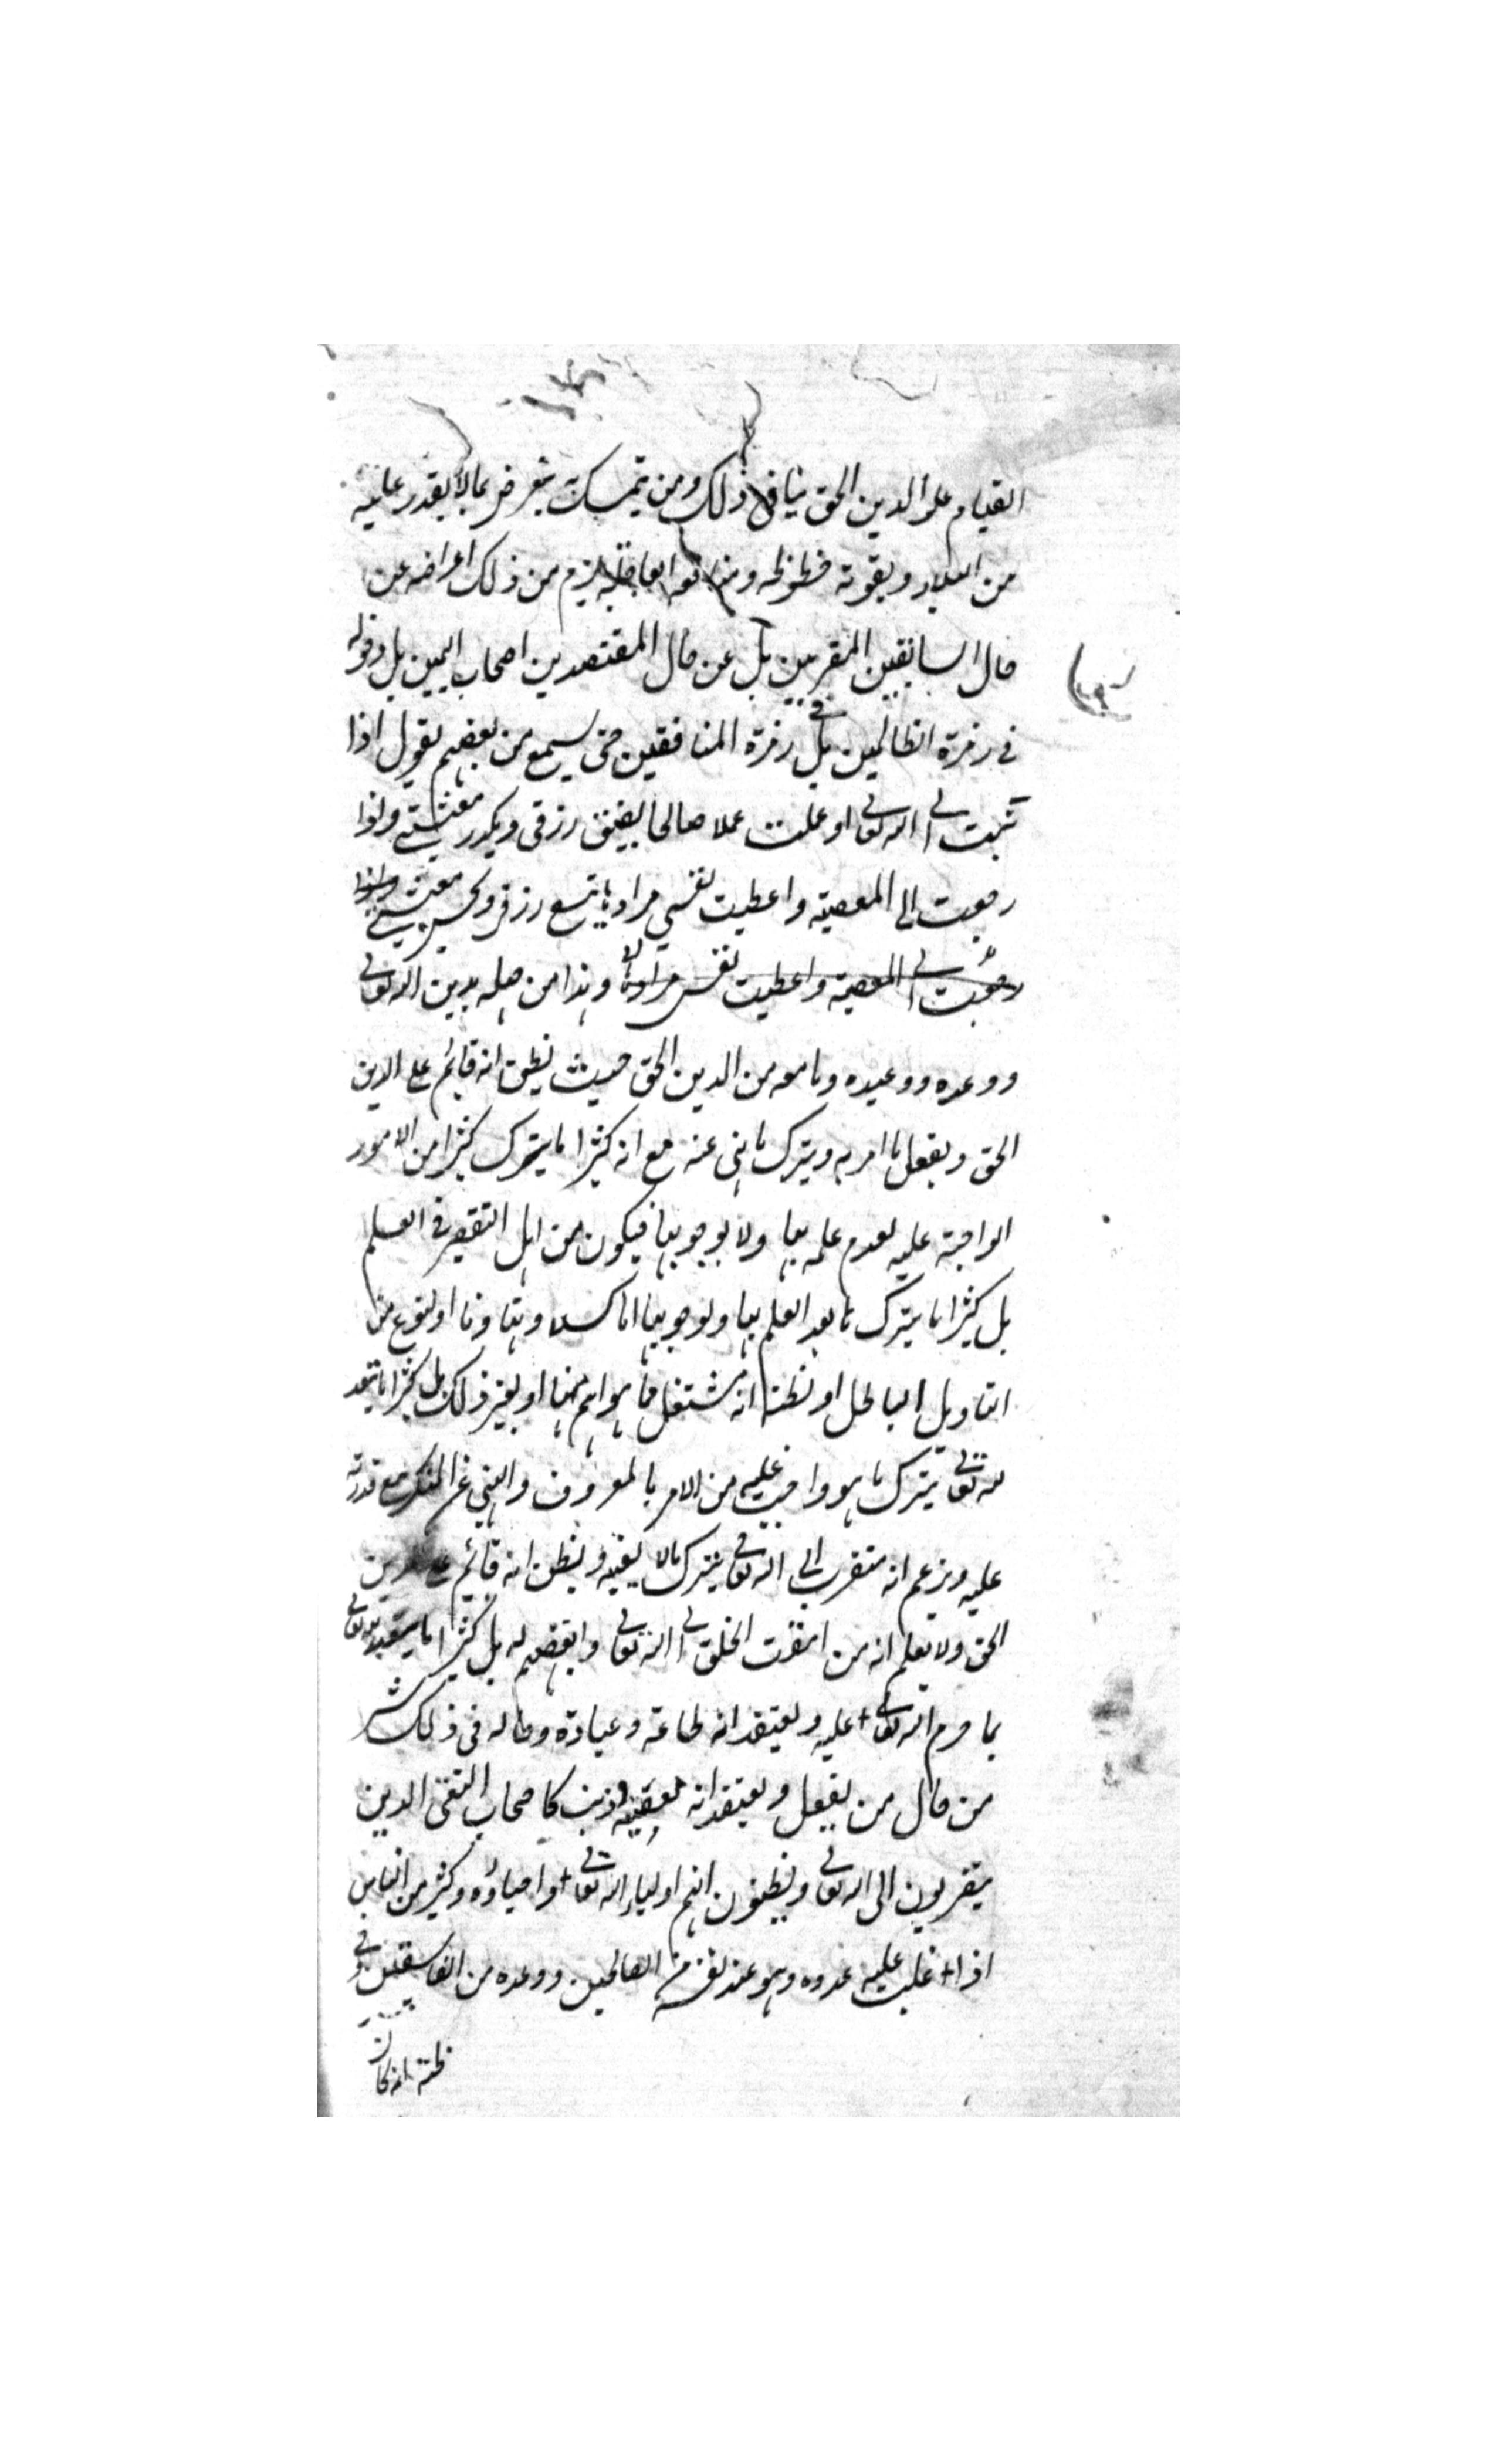 القيام على الدين الحق ينافي ذلك ومن تمسك به يتعرض بما لا يقدر عليه
من البلاء ويفوته حظوظه ومنافعه العاجلة يلزم من ذلك اعراضه عن
حال السابقين المقربين بل عن حال المقتصدين اصحاب اليمين بل دخوله
في زمرة الظالمين بل في زمرة المنافقين حتى يسمع من بعضهم يقول اذا
تبت الى الله تعالى او عملت عملا صالحا يضيق رزقي ويكدر معيشتي واذا
رجعت الى المعصية واعطيت نفسي مرادها يتسع رزقي ويحسن معيشتي واذا
رجعت الى المعصية واعطيت نفسي مرادها وهذا من جهله بدين الله تعالى
ووعده ووعيده وما معه من الدين الحق حيث يظن انه قائم على الدين
الحق ويفعل ما امر به ويترك ما نهى عنه مع انه كثيرا ما يترك كثيرا من الامور
الواجبة عليه لعدم علمه بها ولا بوجوبها فيكون من اهل التقصير في العلم
بل كثيرا ما يترك ما بعد العلم بها وبوجوبها اما كسلا وتهاونا او لنوع من
التاويل الباطل او لظنه انه مشتغل بما هو اهم منها او لغير ذلك بل كثيرا ما يتعبد
لله تعالى بترك ما هو واجب عليه من الامر بالمعروف والنهي عن المنكر مع قدرته
عليه ويزعم انه متقرب الى الله تعالى بترك مالا يعنيه ويظن انه قائم على الدين
الحق ولا يعلم انه من امقت الخلق الى الله تعالى وابغضهم له بل كثيرا ما يتعبد لله تعالى
بما حرم الله تعالى عليه ويعتقد انه طاعة وعبادة وحاله في ذلك شر
من حال من يفعل ويعتقد انه معصية وذنب كاصحاب التغني الذين
يتقربون الى الله تعالى ويظنون انهم اولياء الله تعالى واحباؤه وكثير من الناس
اذا غلب عليه عدوه وهو عند نفسه من الصالحين وعدوه من الفاسقين وفي
ظنه انه كان